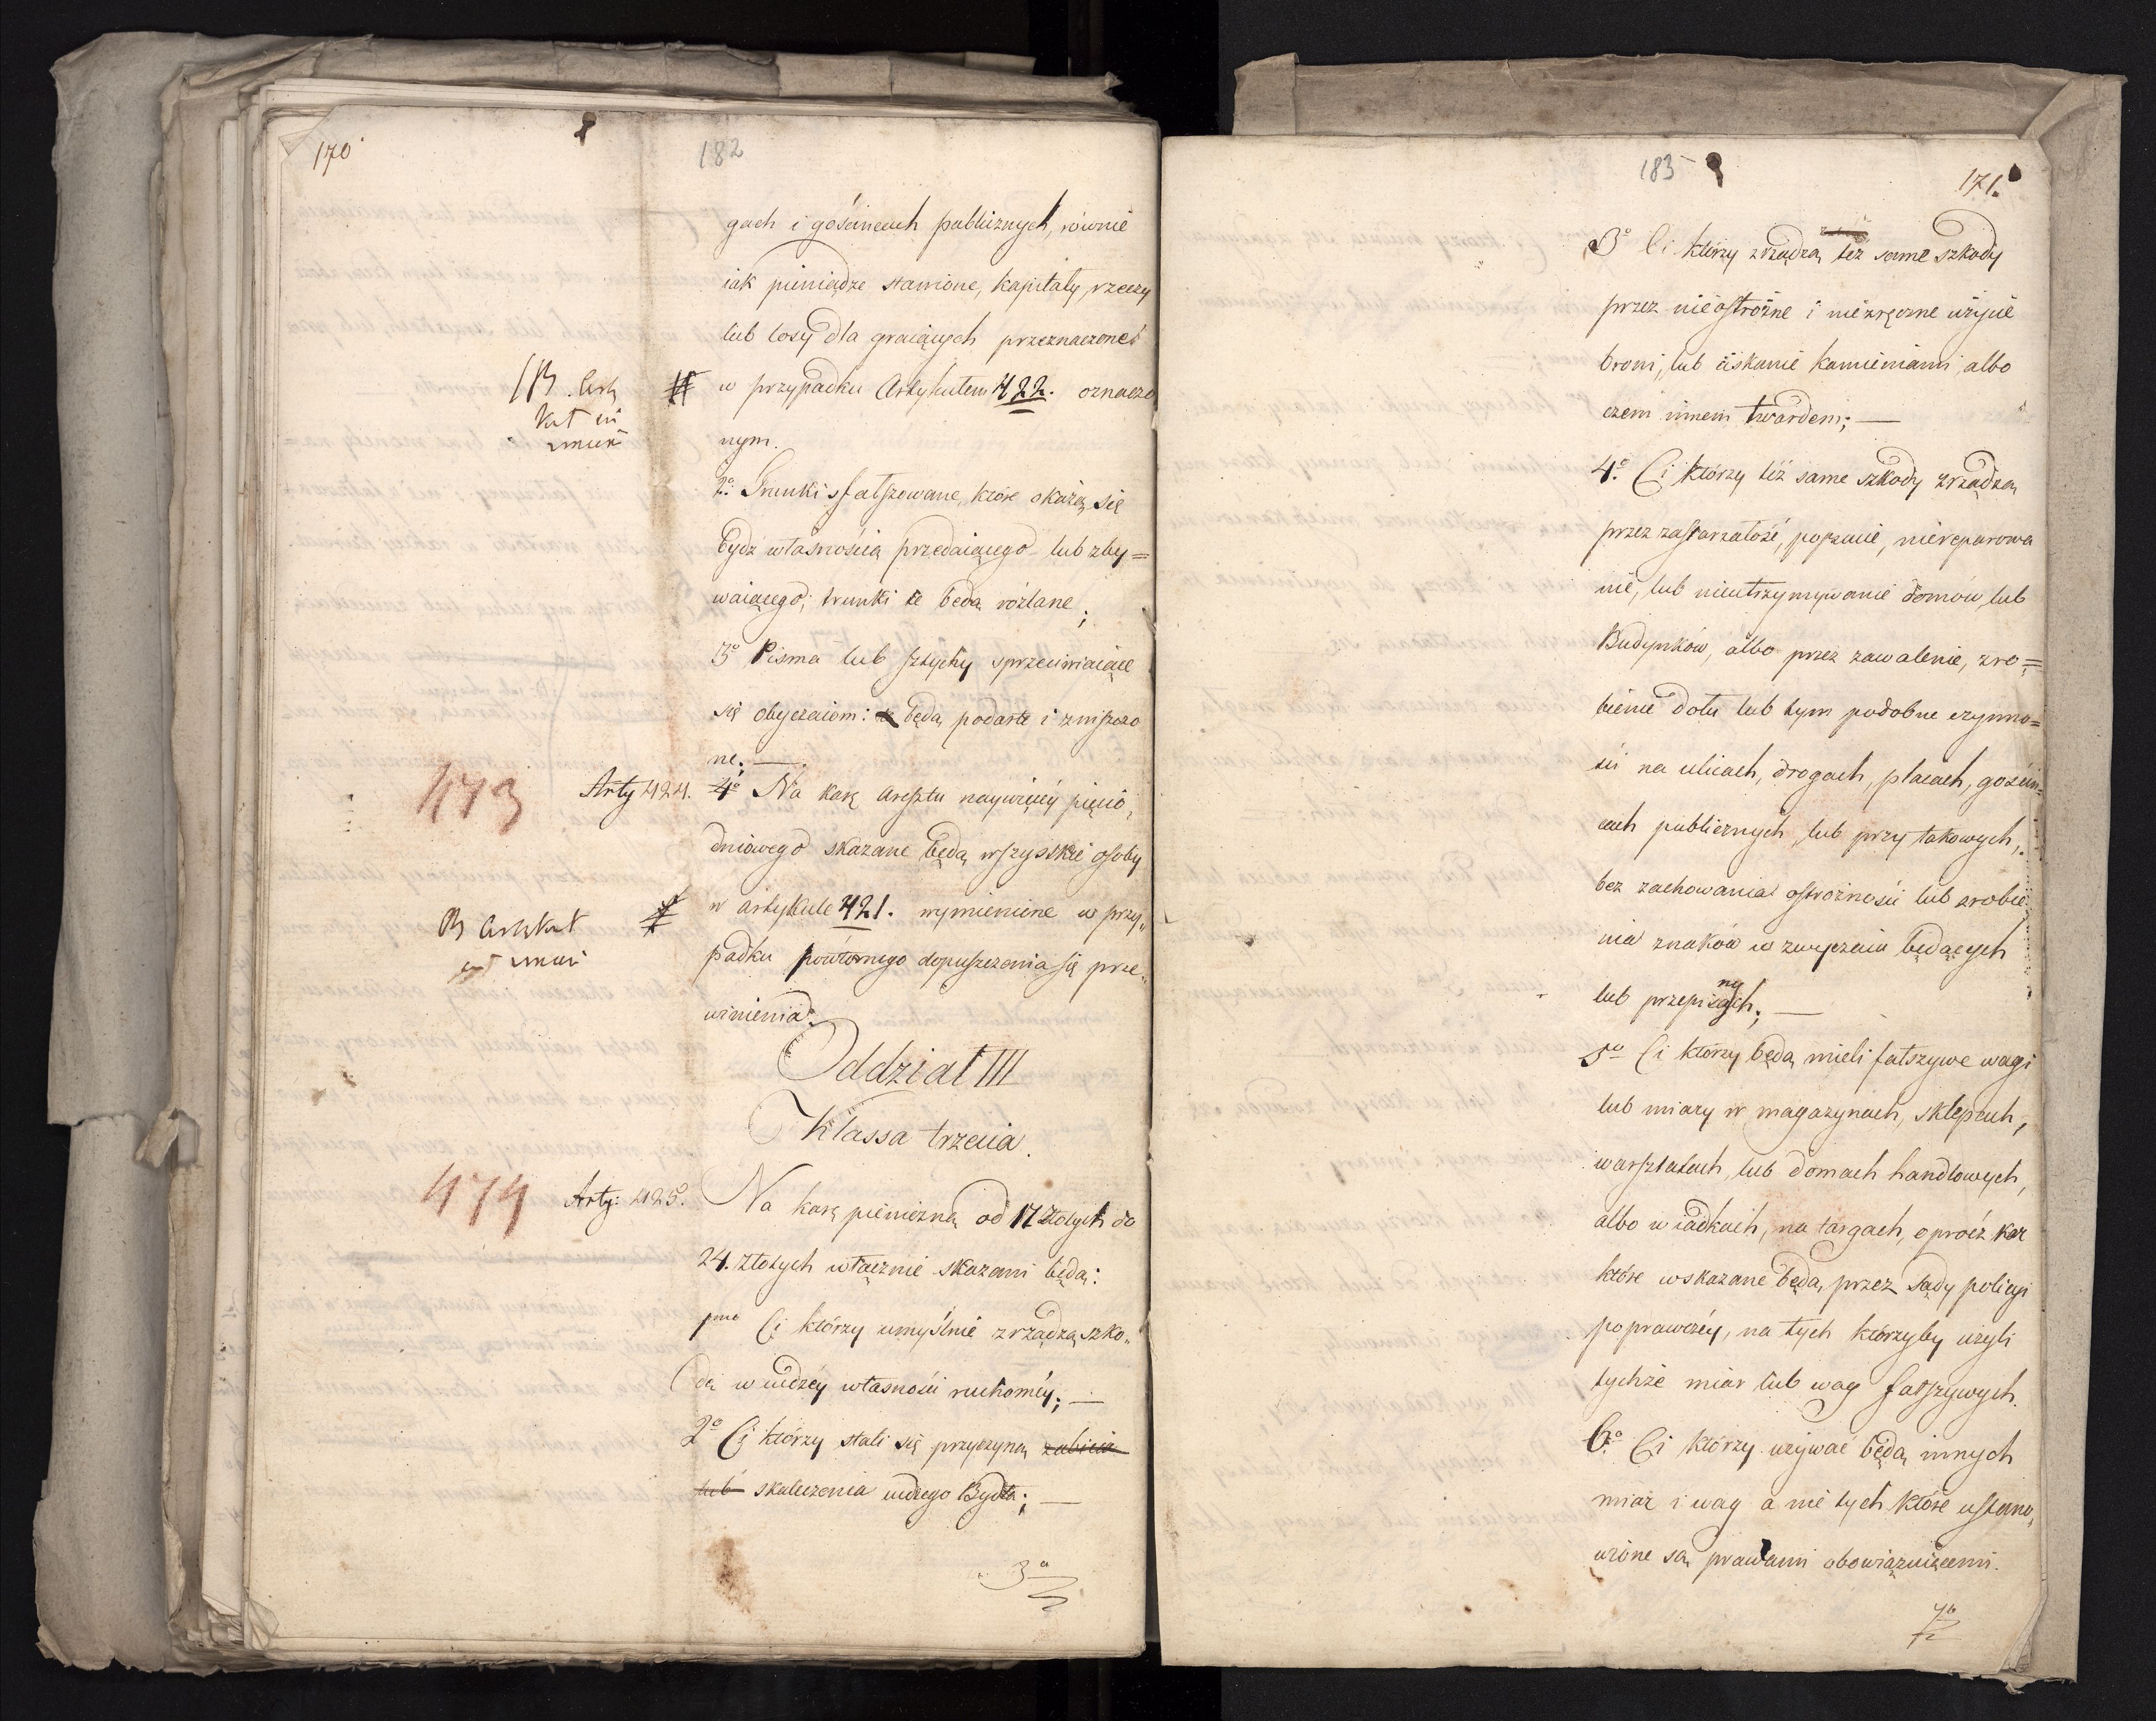 170
182
gach i gościńcach publicznych, równie
iak pieniądze stawione, kapitały, rzeczy
lub losy dla graiących przeznaczone
w przypadku Artykułem 422. oznaczo
nym.
2o. Trunki sfałszowane, które okażą się
bydź własnością przedaiącego lub zby=
waiącego; trunki te będą rozlane;
3o Pisma lub sztychy sprzeciwiaiące
się obyczaiom: będą podarte i zniszczo
ne; —
473
Arty 424. 4o Na karę aresztu naywięcéy pięcio„
dniowego skazane będą wszystkie osoby
w artykule 421. wymienione w przy„
padku powtórnego dopuszczenia się prze„
winienia.
Oddział III
Klassa trzecia.
474
Arty: 425. Na karę pieniężną od 17 złotych do
24. złotych włącznie skazani będą:
pmo Ci którzy umyślnie zrządzą szko„
dę w cudzéy własności ruchoméy; —
2o Ci którzy stali się przyczyną zabicia
lub skaleczenia cudzego Bydła; —
3o
183
171.
3o Ci którzy zrządzą też same szkody
przez nieostrożne i niezręczne użycie
broni, lub ciskanie kamieniami, albo
czem innem twardem; —
4o. Ci którzy też same szkody zrządzą
przez zastarzałość, popsucie, nierepárowa
nie, lub nieutrzymywanie domów, lub
Budynków, albo przez zawalenie, zro=
bienie dołu lub tym podobne czynno=
ści na ulicach, drogach, placach, gościń=
cach publicznych, lub przy takowych,
bez zachowania ostrożności lub zrobie
nia znaków w zwyczaiu będących
lub przepisanych; —
5o Ci którzy będą mieli fałszywe wagi
lub miary w magazynach, sklepach,
warsztatach, lub domach handlowych,
albo w iadkach, na targach, oprócz kar
które wskazane będą, przez Sądy policyi
poprawczéy, na tych którzyby użyli
tychże miar lub wag fałszywych.
6o. Ci którzy używać będą innych
miar i wag a nie tych które ustano„
wione są prawami obowiązuiącemi.